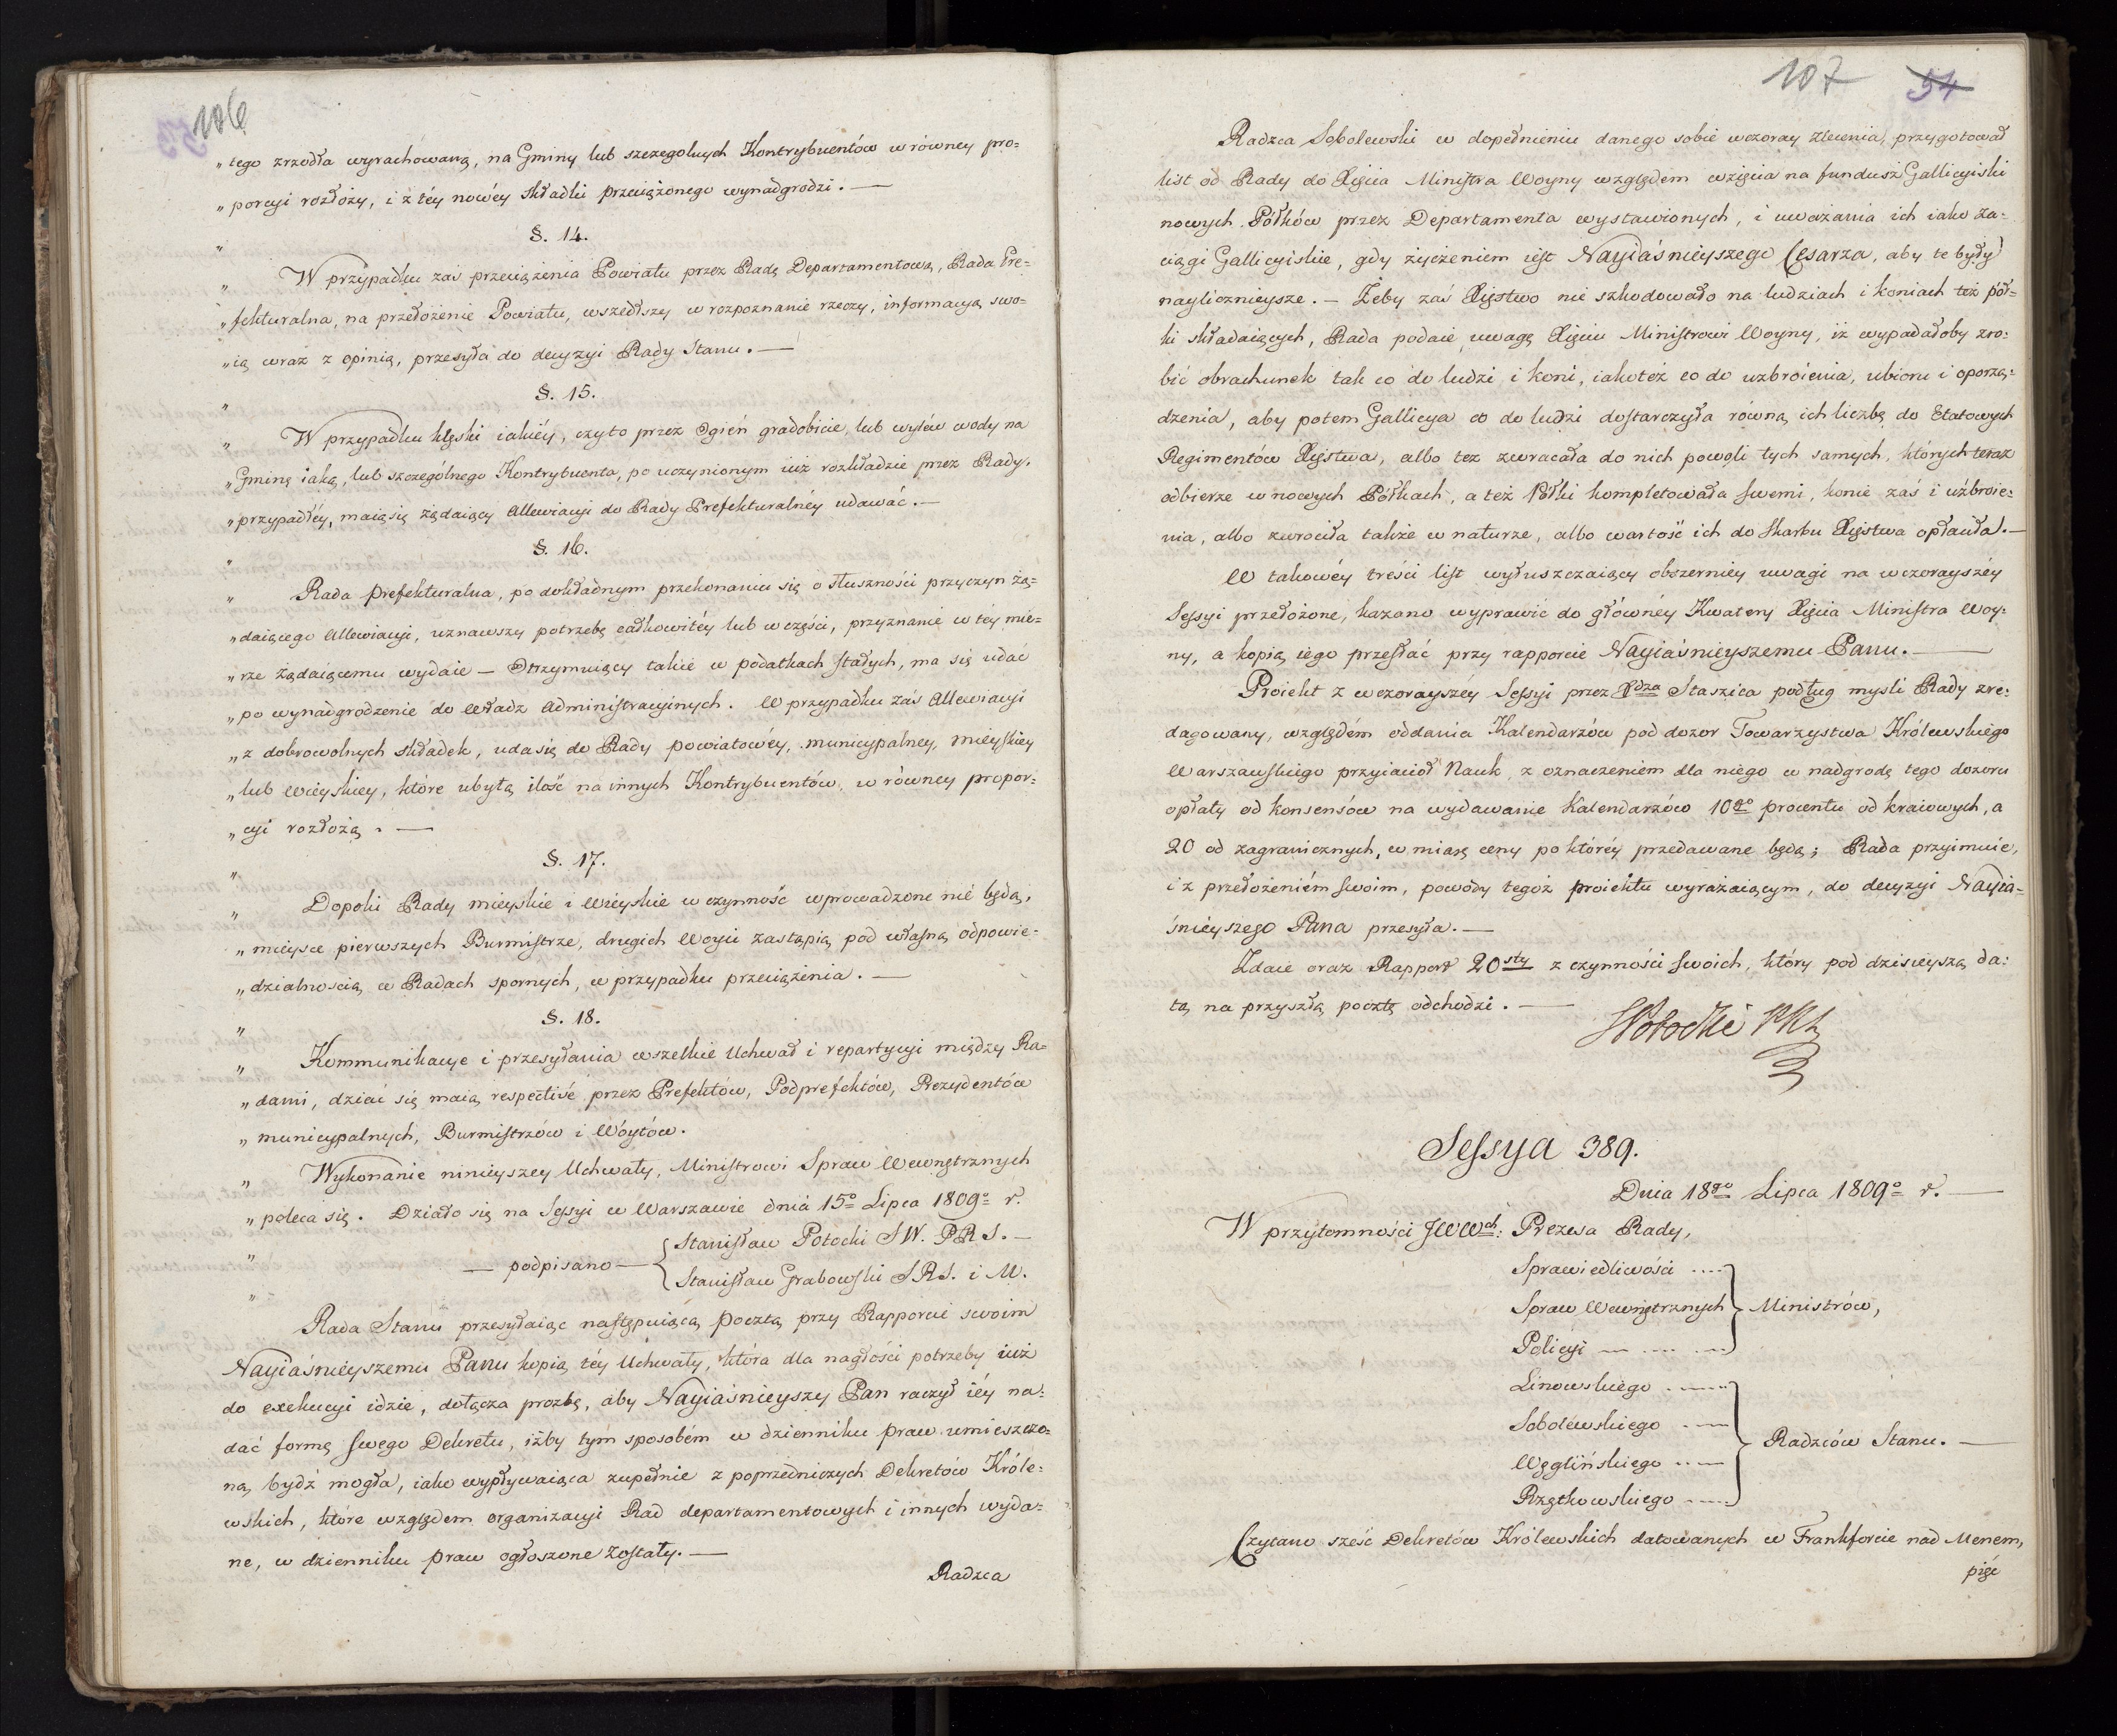 106
„ tego zrzodła wyrachowaną, na Gminy lub szczegolnych Kontrybuentów w równey pro=
„ porcyi rozłoży, i z téy nowéy składki przeciążonego wynadgrodzi. —
„ §. 14.
„ W przypadku zaś przeciążenia Powiatu przez Radę Departamentową, Rada Pre=
„ fekturalna, na przełożenie Powiatu, wszedłszy w rozpoznanie rzeczy, informacyą swo=
„ ią wraz z opinią, przesyła do decyzyi Rady Stanu. —
„ §. 15.
„ W przypadku klęski iakiéy, czyto przez Ogień gradobicie, lub wylew wody na
„ Gminę iaką, lub szczególnego Kontrybuenta, po uczynionym iuż rozkładzie przez Rady,
„ przypadłéy, maią się żądaiący Allewiacyi do Rady Prefekturalnéy udawać. —
„ §. 16.
„ Rada Prefekturalna, po dokładnym przekonaniu się o słuszności przyczyn żą=
„ daiącego Allewiacyi, uznawszy potrzebę całkowitéy lub w części, przyznanie w téy mie=
„ rze żądaiącemu wydaie — Otrzymuiący takie w podatkach stałych, ma się udać
„ po wynadgrodzenie do Władz Administracyinych. W przypadku zaś Allewiacyi
„ z dobrowolnych składek, uda się do Rady powiatowéy, municypalney, mieyskiey
„ lub wieyskiey, które ubytą ilość na innych Kontrybuentów, w równey propor=
„ cyi rozłożą. —
„ §. 17.
„ Dopoki Rady mieyskie i Wieyskie w czynność wprowadzone nie będą,
„ mieysce pierwszych Burmistrze, drugich Woyci zastąpią pod własną odpowie=
„ dzialnością w Radach spornych, w przypadku przeciążenia. —
„ §. 18.
„ Kommunikacye i przesyłania wszelkie Uchwał i repartycyi między Ra=
„ dami, dziać się maią respective przez Prefektów, Podprefektów, Prezydentów
„ municypalnych, Burmistrzów i Wóytów.
„ Wykonanie ninieyszey Uchwały, Ministrowi Spraw Wewnętrznych
„ poleca się. Działo się na Sessyi w Warszawie dnia 15º Lipca 1809º r.
„ — podpisano — { Stanisław Potocki S W. P R S. —
„ Stanisław Grabowski S R S. i M.
Rada Stanu przesyłaiąc następuiącą pocztą przy Rapporcie swoim
Nayiaśnieyszemu Panu kopią téy Uchwały, która dla nagłości potrzeby iuż
do exekucyi idzie, dołącza prozbę, aby Nayiaśnieyszy Pan raczył iéy na=
dać formę swego Dekretu, iżby tym sposobém w dzienniku praw umieszczo=
ną bydź mogła, iako wypływaiąca zupełnie z poprzedniczych Dekretów Króle=
wskich, które względem organizacyi Rad departamentowych i innych wyda=
ne, w dzienniku praw ogłoszone zostały. —
Radzca
107 54
Radzca Sobolewski w dopełnieniu danego sobie wczoray zlecenia, przygotował
list od Rady do Xięcia Ministra Woyny względem wzięcia na fundusz Gallicyiski
nowych Półków przez Departamenta wystawionych, i uważania ich iako Za=
ciągi Gallicyiskie, gdy życzeniem iest Nayiaśnieyszego Cesarza, aby te były
nayliczneysze. — Żeby zaś Xięstwo nie szkodowało na ludziach i koniach też pół=
ki składaiących, Rada podaie uwagę Xięciu Ministrowi Woyny, iż wypadałoby zro=
bić obrachunek tak co do ludzi i koni, iakoteż co do uzbroienia, ubioru i oporzą=
dzenia, aby potem Gallicya co do ludzi dostarczyła równą ich liczbę do Etatowych
Regimentów Xięstwa, albo też zwracała do nich powoli tych samych, których teraz
odbierze w nowych Półkach, a też Półki kompletowała swemi, konie zaś i uzbroie=
nia, albo zwrociła także w naturze, albo wartość ich do Skarbu Xięstwa opłaciła. —
W takowéy treści list wyłuszczaiący obszerniey uwagi na wczorayszéy
Sessyi przełożone, kazano wyprawić do głównéy Kwatery Xięcia Ministra Woy=
ny, a kopią iego przesłać przy rapporcie Nayiaśnieyszemu Panu. —
Proiekt z wczorayszéy Sessyi przez Rdza Staszica podług mysli Rady zre=
dagowany, względém oddania Kalendarzów pod dozor Towarzystwa Królewskiego
Warszawskiego przyiaciół Nauk, z oznaczeniem dla niego w nadgrodę tego dozoru
opłaty od konsensów na wydawanie Kalendarzów 10go procentu od kraiowych, a
20 od zagranicznych, w miarę ceny po któréy przedawane będą; Rada przyimuie,
i z przełożeniém swoim, powody tegoż proiektu wyrażaiącym, do decyzyi Nayia=
śnieyszego Pana przesyła. —
Zdaie oraz Rapport 20sty z czynności swoich, który pod dzisieyszą da=
tą na przyszłą pocztę odchodzi. —
SPotocki
Sessya 389.
Dnia 18go Lipca 1809º r. —
W przytomności JWWch: Prezesa Rady,
Sprawiedliwości ....
Spraw Wewnętrznych } Ministrów,
Policyi — .... —
Linowskiego ......
Sobolewskiego ....
Węglińskiego .... } Radzców Stanu. —
Rzętkowskiego .....
Czytano sześć Dekretów Królewskich datowanych w Frankforcie nad Menem,
pięć